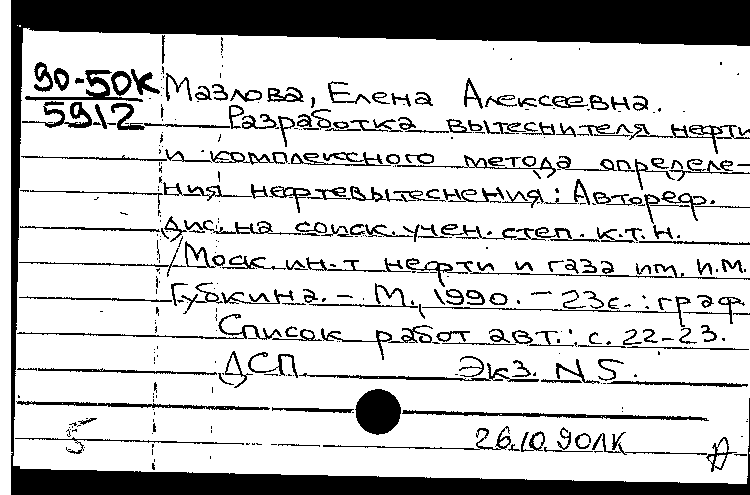 90-50К
5912
Мазлова, Елена Алексеевна.
Разработка вытеснителя нефти
и комплексного метода определе-
ния нефтевытеснения: Автореф.
дис. на соиск. учен. степ. к.т.н.
/Моск. ин-т нефти и газа им. И.М.
Губкина. – М., 1990. – 23с.: граф
Список работ авт.: с. 22-23.
ДСП Экз. N 5.
5 26.10.90ЛК